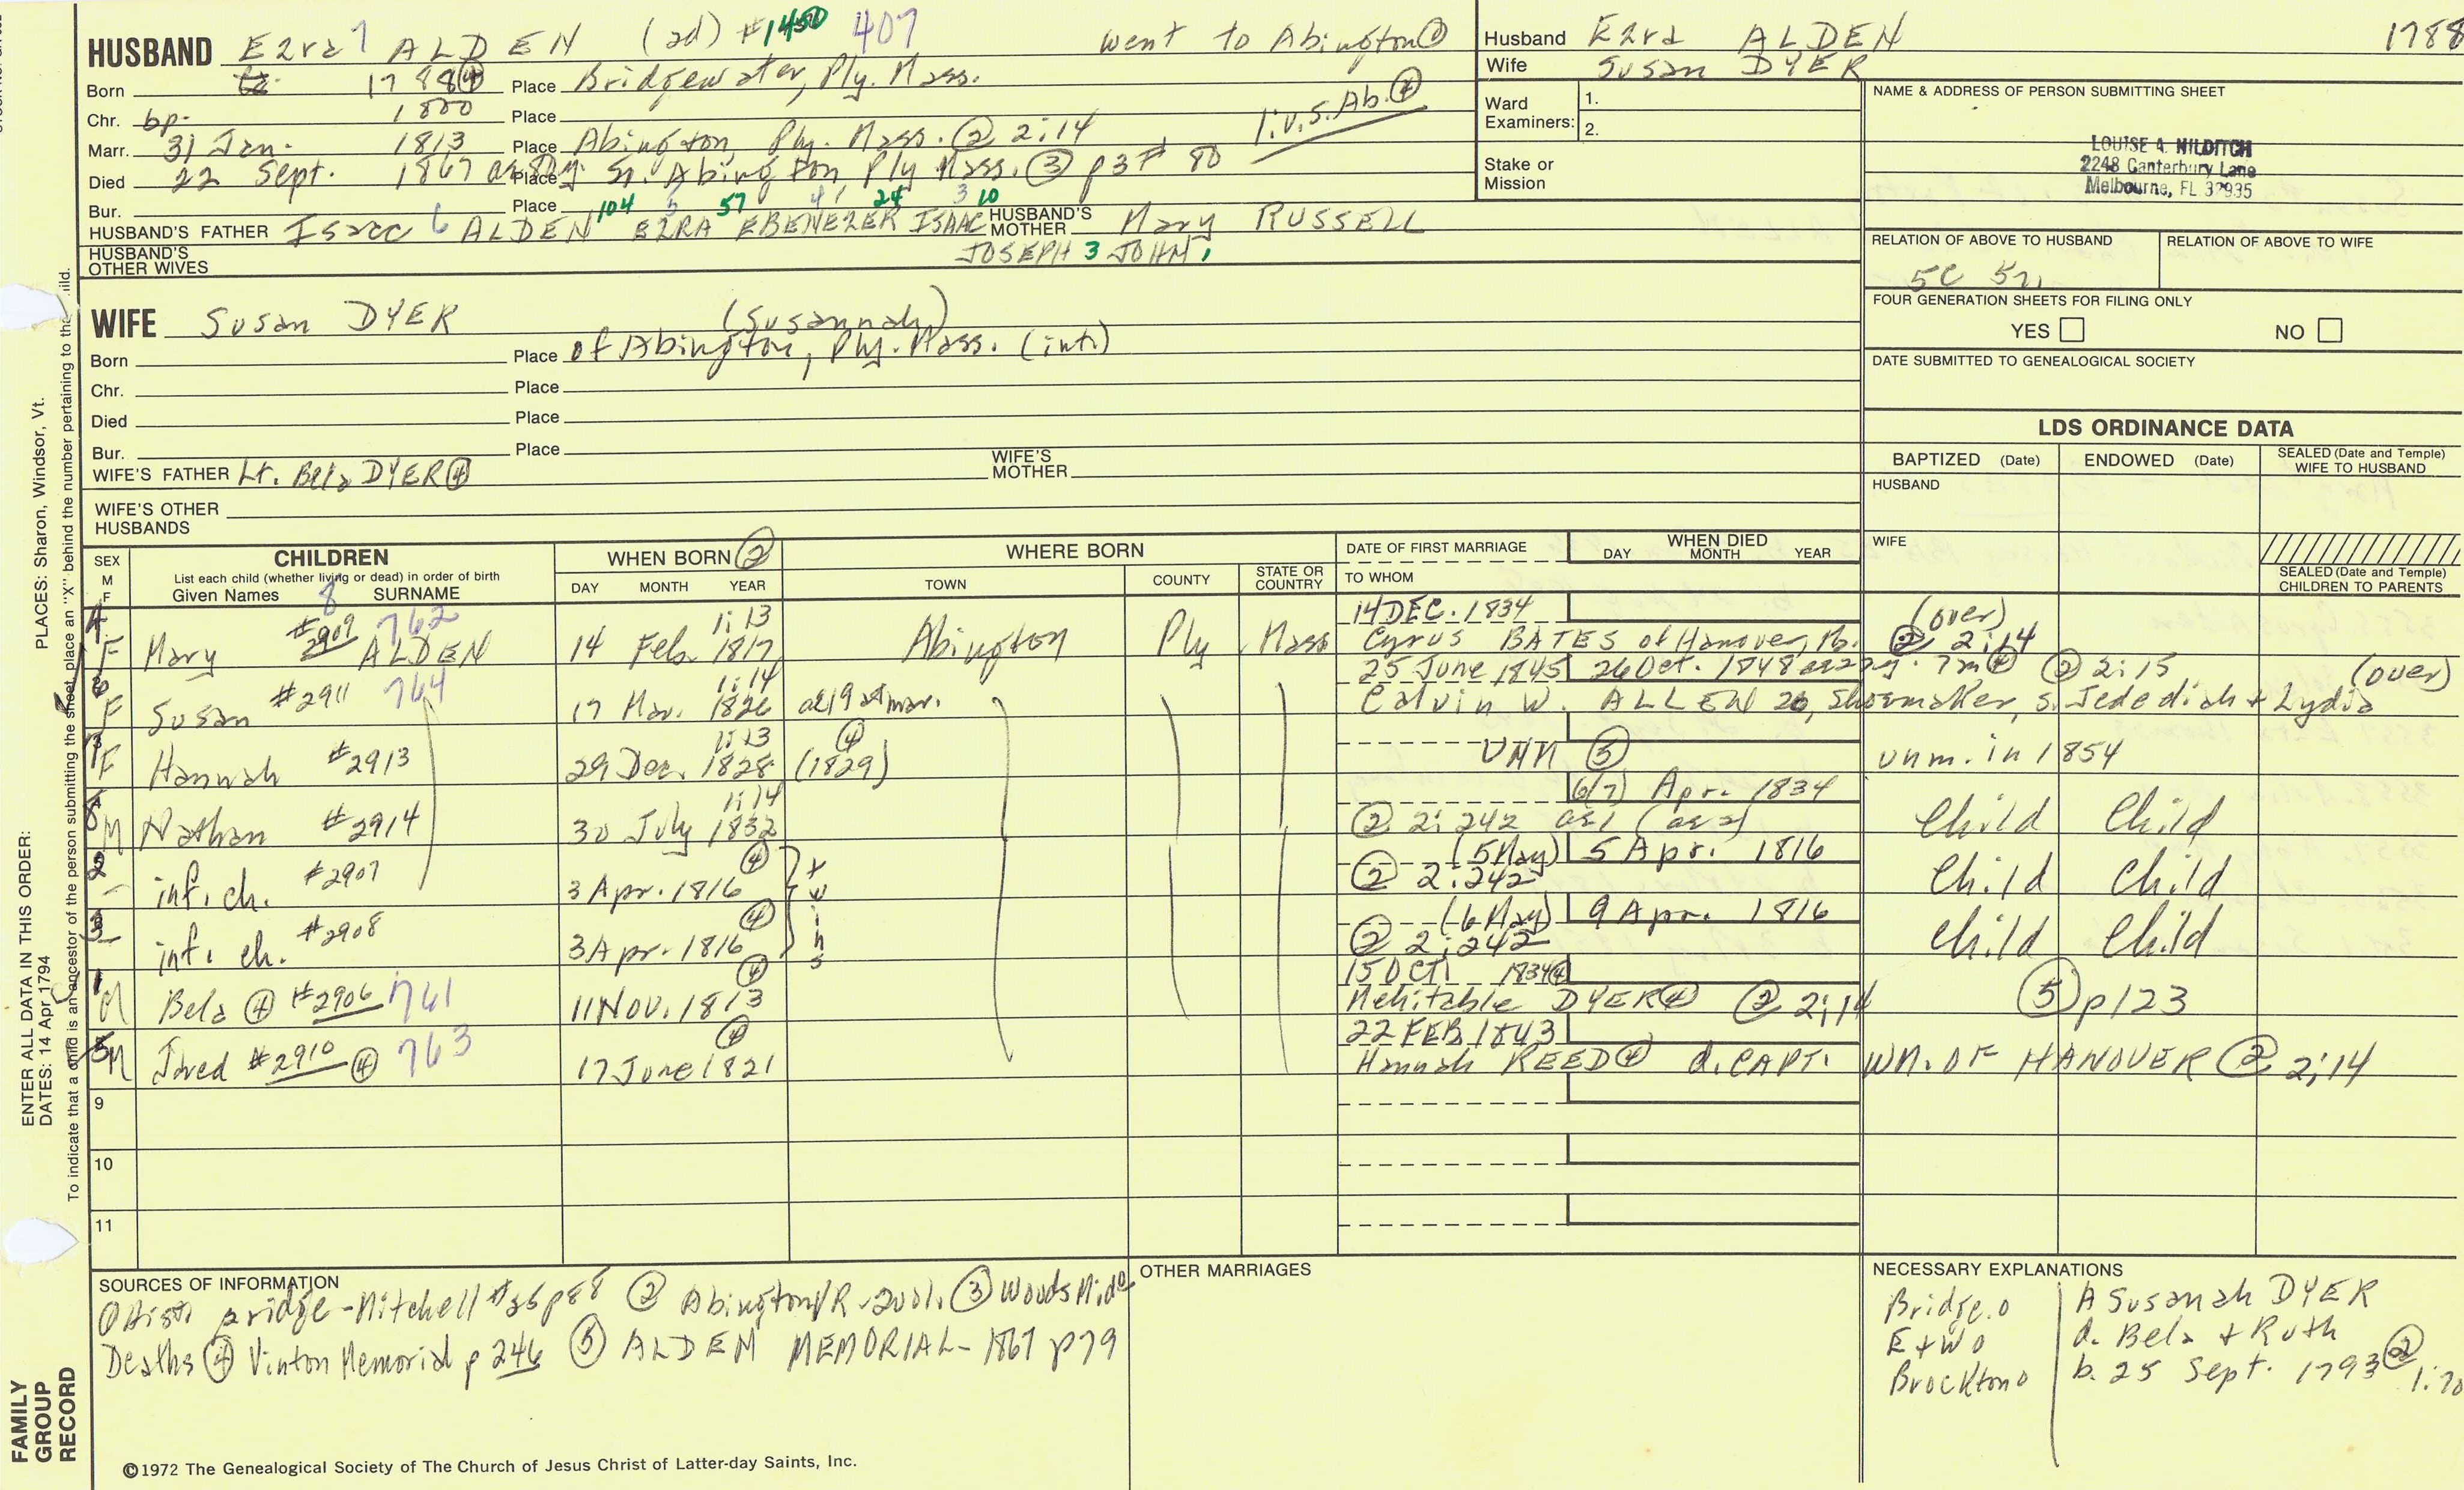 HUSBAND Ezra 7 ALDEN (ad) #1450 407 went to Abington ①
Born 1788 ④ Place Bridgewater, Ply. Mass.
Chr. bp. 1800 Place
Marr. 31 Jan. 1813 Place Abington, Ply. Mass. ② 2:14 liv. S. Ab. ④
Died 22 Sept. 1867 Place So. Abington Ply Mass. ③ p3 # 80
Bur. Place 104 5 57 4 24 3 10
HUSBAND'S FATHER Isaac 6 ALDEN EZRA EBENEZER ISAAC HUSBAND'S MOTHER Mary RUSSELL
HUSBAND'S OTHER WIVES JOSEPH 3 JOHN 1
WIFE Susan DYER (Susannah)
Born Place of Abington, Ply. Mass. (int.)
Chr. Place
Died Place
Bur. Place
WIFE'S FATHER Lt. Bela DYER ④ WIFE'S MOTHER
WIFE'S OTHER HUSBANDS
Husband Ezra ALDEN 1788
Wife Susan DYER
Ward Examiners: 1.
2.
Stake or Mission
NAME & ADDRESS OF PERSON SUBMITTING SHEET
LOUISE A. HILDITCH
2248 Canterbury Lane
Melbourne, FL 32935
RELATION OF ABOVE TO HUSBAND RELATION OF ABOVE TO WIFE
5C 5r,
FOUR GENERATION SHEETS FOR FILING ONLY
YES NO
DATE SUBMITTED TO GENEALOGICAL SOCIETY
LDS ORDINANCE DATA
BAPTIZED (Date) ENDOWED (Date) SEALED (Date and Temple) WIFE TO HUSBAND
HUSBAND
WIFE
SEALED (Date and Temple) CHILDREN TO PARENTS
SEX M F CHILDREN WHEN BORN ② WHERE BORN DATE OF FIRST MARRIAGE WHEN DIED
List each child (whether living or dead) in order of birth
Given Names 8 SURNAME DAY MONTH YEAR TOWN COUNTY STATE OR COUNTRY TO WHOM DAY MONTH YEAR
4 #2909 762 1:13 14 DEC. 1834 (over)
F Mary ALDEN 14 Feb. 1817 Abington Ply Mass Cyrus BATES of Hanover, ② 2:14
6 #2911 764 1:14 25 June 1845 26 Oct. 1848 ae 22y. 7m ④ ② 2:15 (over)
F Susan 17 Mar. 1826 ae 19 at mar. Calvin W. ALLEN 20, Shoemaker, s. Jedediah + Lydia
7 1:13 ④ UNM ⑤
F Hannah #2913 29 Dec. 1828 (1829) unm. in 1854
8 1:14 6(7) Apr. 1834
M Nathan #2914 30 July 1832 ② 2:242 ae 1 (ae 2) Child Child
2 ④ (5 May) 5 Apr. 1816
- inf. ch. #2907 3 Apr. 1816 twins ② 2:242 Child Child
3 ④ (6 May) 9 Apr. 1816
- inf. ch. #2908 3 Apr. 1816 ② 2:242 Child Child
1 ④ 15 OCT 1834 ④
M Bela ④ #2906 761 11 Nov. 1813 Mehitable DYER ④ ② 2:14 ⑤ p123
5 ④ 22 FEB 1843
M Jared #2910 ④ 763 17 June 1821 Hannah REED ④ d. CAPT. WM. OF HANOVER ② 2:14
9
10
11
SOURCES OF INFORMATION
① Hist Bridge - Mitchell #26 p88 ② Abington VR - 2vol. ③ Woods
Deaths ④ Vinton Memorial p 246 ⑤ ALDEN MEMORIAL - 1867 p79
OTHER MARRIAGES
NECESSARY EXPLANATIONS
Bridge. o
E+W o
Brockton o
A Susanah DYER
d. Bela + Ruth
b. 25 Sept. 1793 ② 1:70
©1972 The Genealogical Society of The Church of Jesus Christ of Latter-day Saints, Inc.
ENTER ALL DATA IN THIS ORDER: PLACES: Sharon, Windsor, Vt.
DATES: 14 Apr 1794
To indicate that a child is an ancestor of the person submitting the sheet, place an "X" behind the number pertaining to the
FAMILY GROUP RECORD